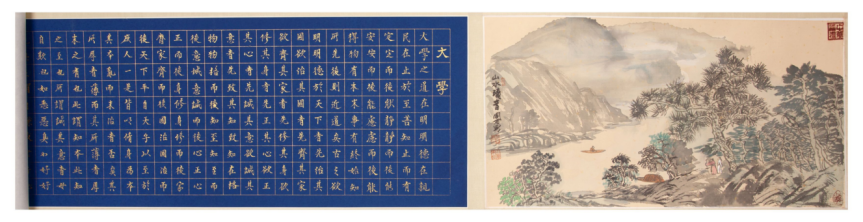 大學
大學之道在明明德在親
民在止於至善知止而有
定定而後能靜靜而後能
安安而後能慮慮而後能
得物有本末事有終始知
所先後則近道矣古之欲
明明德於天下者先治其
國欲治其國者先齊其家
欲齊其家者先修其身欲
修其身者先正其心欲正
其心者先誠其意欲誠其
意者先致其知致知在格
物物格而後知至知至而
後意誠意誠而後心正心
正而後身修身修而後家
齊家齊而後國治國治而
後天下平自天子以至於
庶人一是皆以修身為本
其本亂而末治者否矣其
所厚者薄而其所薄者厚
未之有也此謂知本此知
之至也所謂誠其意者毋
自欺也如惡惡臭如好好